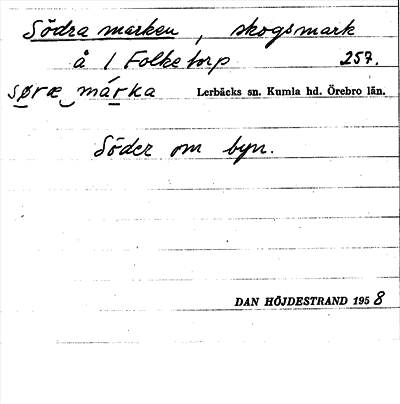 Södra marken, skogsmark
å 1 Folketorp 257.
søræ márka Lerbäcks sn. Kumla hd. Örebro län.
Söder om byn.
DAN HÖJDESTRAND 1958